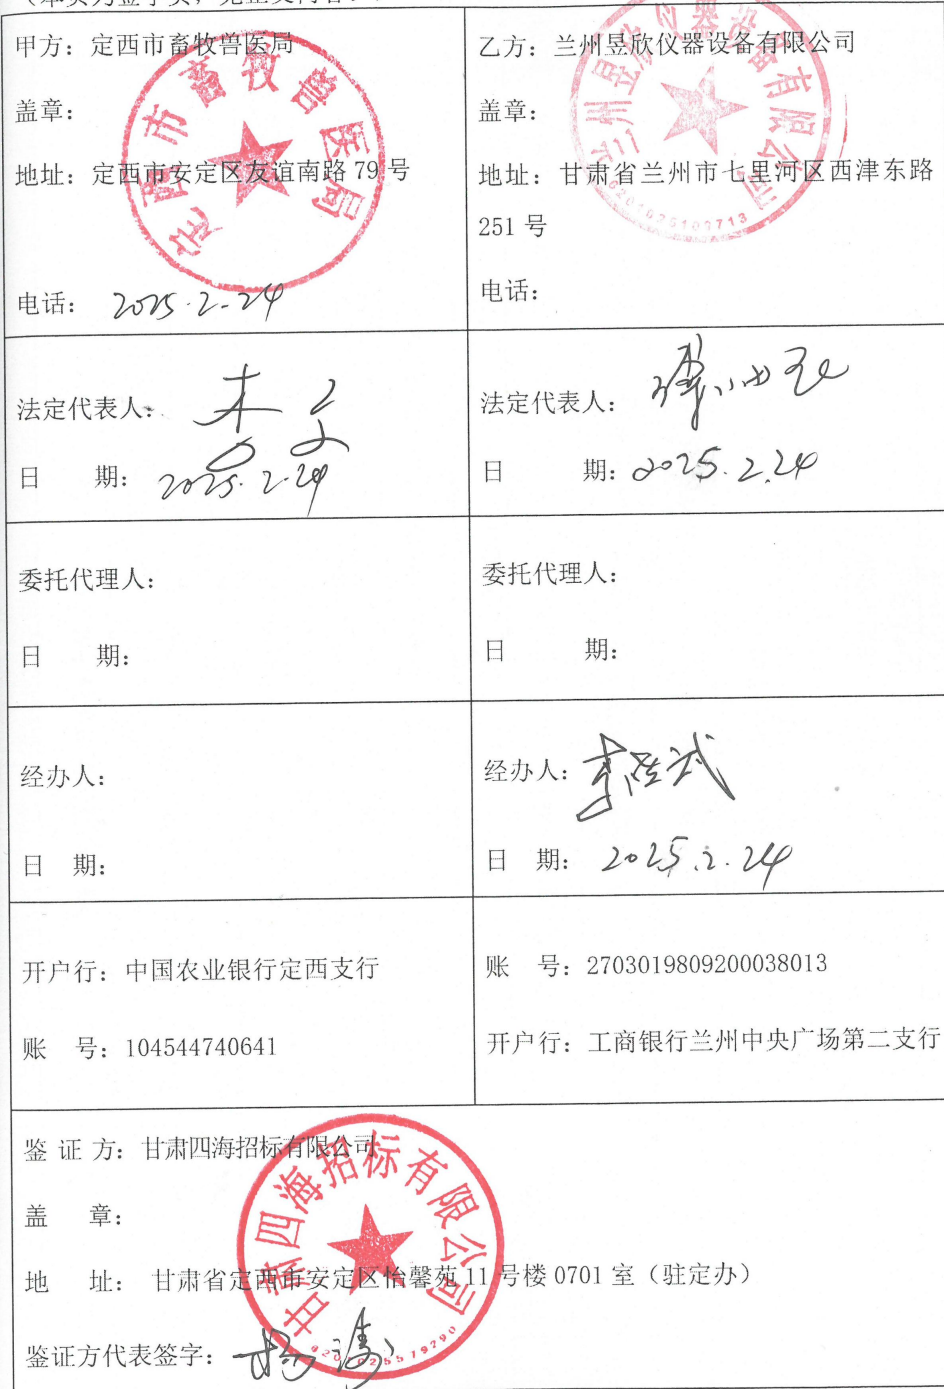 甲方：定西市畜牧兽医局
盖章：
地址：定西市安定区友谊南路 79 号
电话： 2025.2.24
定西市畜牧兽医局
乙方：兰州昱欣仪器设备有限公司
盖章：
地址：甘肃省兰州市七里河区西津东路
251 号
电话：
兰州昱欣仪器设备有限公司
法定代表人：
日 期：2025.2.24
法定代表人：
日 期：2025.2.24
委托代理人：
日 期：
委托代理人：
日 期：
经办人：
日 期：
经办人：
日 期： 2025.2.24
开户行：中国农业银行定西支行
账 号：104544740641
账 号：2703019809200038013
开户行：工商银行兰州中央广场第二支行
鉴 证 方：甘肃四海招标有限公司
盖 章：
地 址： 甘肃省定西市安定区怡馨苑 11 号楼 0701 室（驻定办）
鉴证方代表签字：
甘肃四海招标有限公司